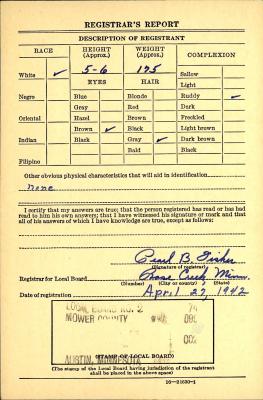 REGISTRAR'S REPORT
DESCRIPTION OF REGISTRANT
RACE HEIGHT (Approx.) WEIGHT (Approx.) COMPLEXION
White ✓ 5-6 175 Sallow
EYES HAIR Light
Negro Blue Blonde Ruddy ✓
Gray Red Dark
Oriental Hazel Brown Freckled
Brown ✓ Black Light brown
Indian Black Gray ✓ Dark brown
Bald Black
Filipino
Other obvious physical characteristics that will aid in identification
none
I certify that my answers are true; that the person registered has read or has had
read to him his own answers; that I have witnessed his signature or mark and that
all of his answers of which I have knowledge are true, except as follows:
B. Fisher
(Signature of registrar)
Registrar for Local Board Creek Minn.
(Number) (City or county) (State)
Date of registration April 27, 1942
LOCAL BOARD NO. 2
MOWER COUNTY
AUSTIN, MINNESOTA
(STAMP OF LOCAL BOARD)
(The stamp of the Local Board having jurisdiction of the registrant
shall be placed in the above space)
16—21630-1